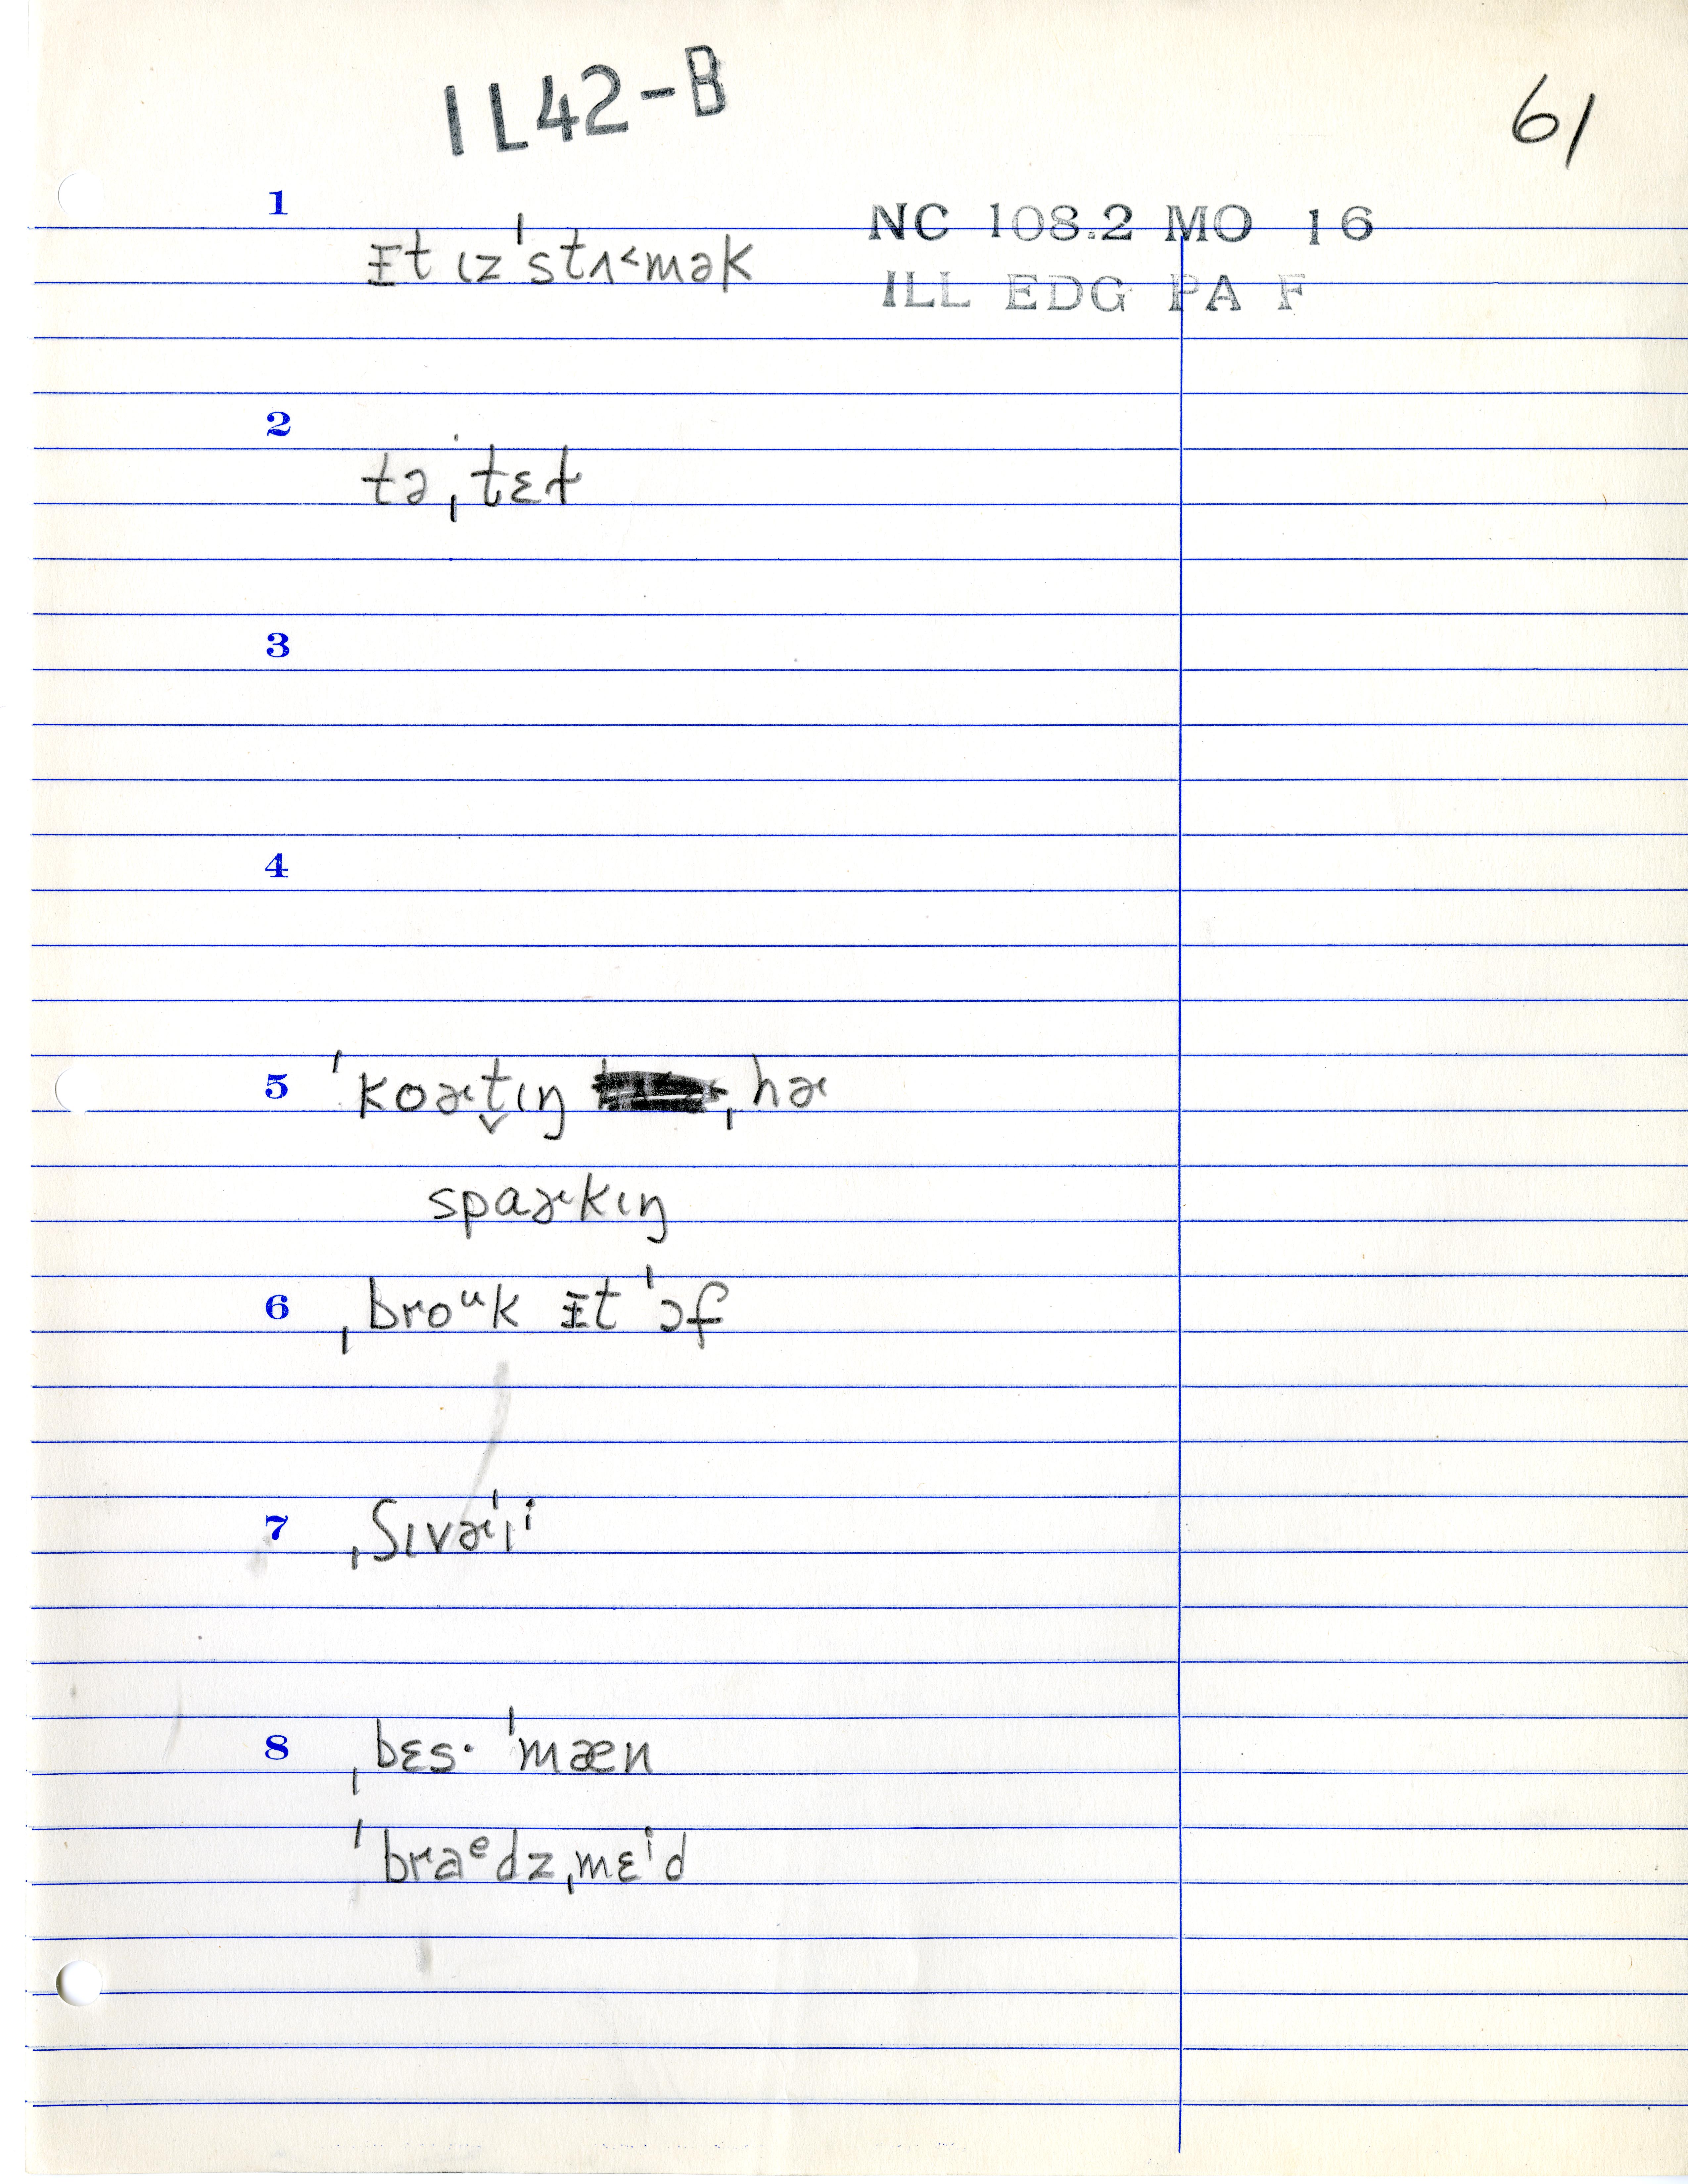 IL42-B
61
1
NC 108.2 MO 16
ᵻt ɪz ˈstʌ˂mək
ILL EDG PA F
2
tə ˌtɛt
3
4
5 ˈkoɚt̬ɪŋ ˌhɚ
spaɚkɪŋ
6 ˌbroᵘk ᵻt ˈɔf
7 ˌʃɪvɚˈiⁱ
8 ˌbɛs· ˈmæn
ˈbraᵉdzˌmɛⁱd